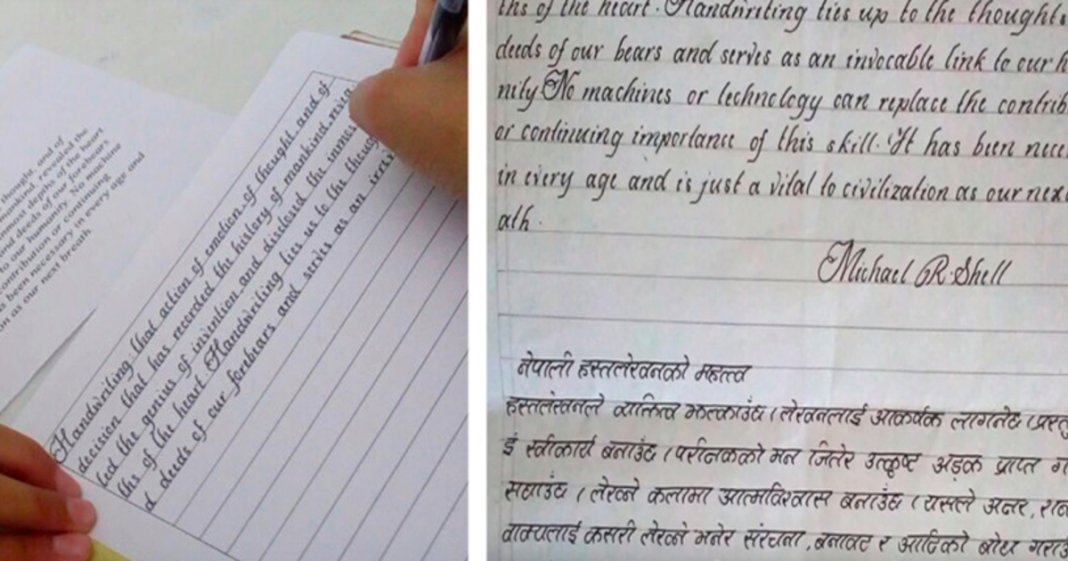 thought, and of
mankind, revealed the
inmost depths of the heart
and deeds of our forebears
to our humanity. No machine
contribution or continuing
as been necessary in every age and
n as our next breath.
Handwriting: that action of emotion of thought, and of
decision that has recorded the history of mankind, revea
led the genius of invention and disclosed the inmos
ths of the heart. Handwriting ties us to the though
d deeds of our forebears and serves as an irrev
ths of the heart. Handwriting ties up to the thoughts
deeds of our bears and serves as an invocable link to our h
nity. No machines or technology can replace the contrib
or continuing importance of this skill. It has been nece
in every age and is just a vital to civilization as our nex
ath.
Michael R. Shell
नेपाली हस्तलेखनको महत्त्व
हस्तलेखनले व्यक्तित्व झल्काउँछ। लेखनलाई आकर्षक लाग्नेछ। प्रस्तु
ई स्वीकार्य बनाउँछ। परीक्षकको मन जितेर उत्कृष्ट अङ्क प्राप्त ग
सघाउँछ। लेख्ने कलामा आत्मविश्वास बनाउँछ। यसले अक्षर, शब्
वाक्यलाई कसरी लेख्ने भनेर संरचना, बनावट र आदिको बोध गराउ